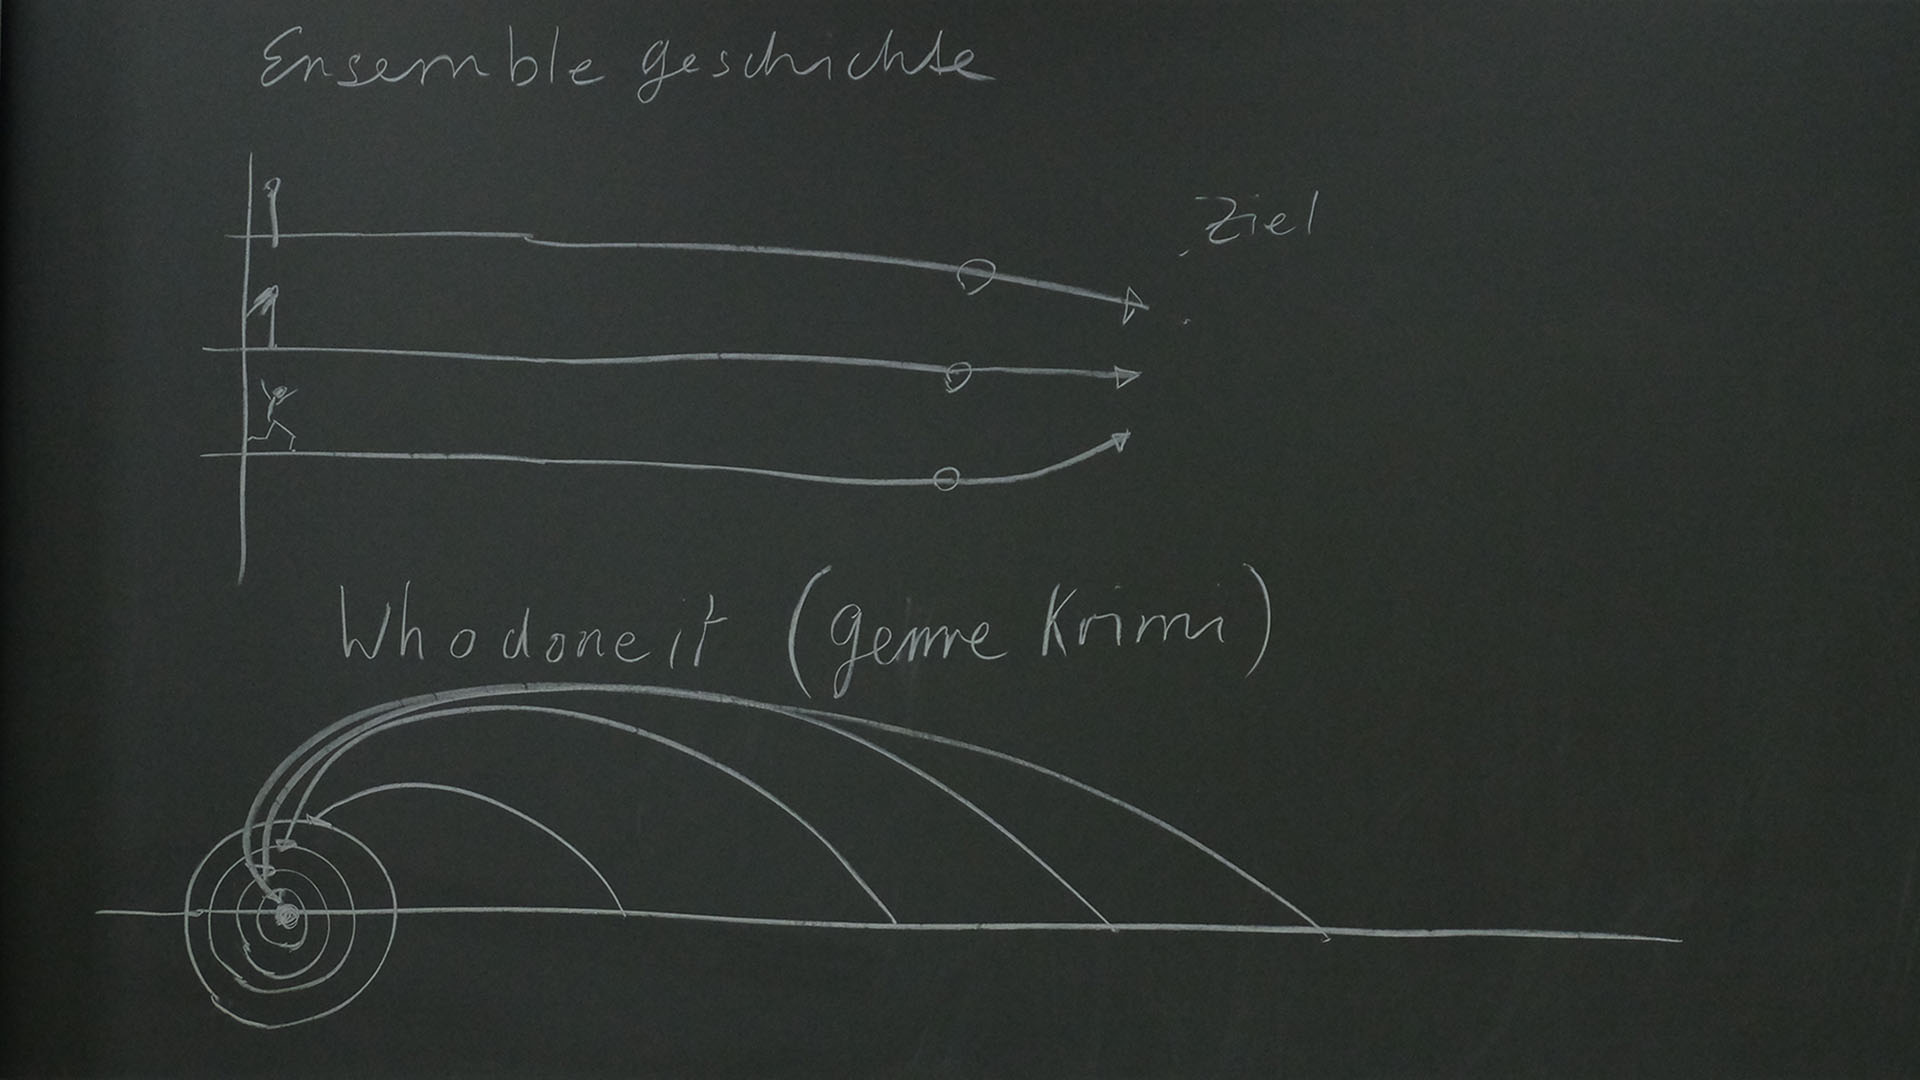 Ensemble geschichte
Ziel
Whodoneit (genre Krimi)